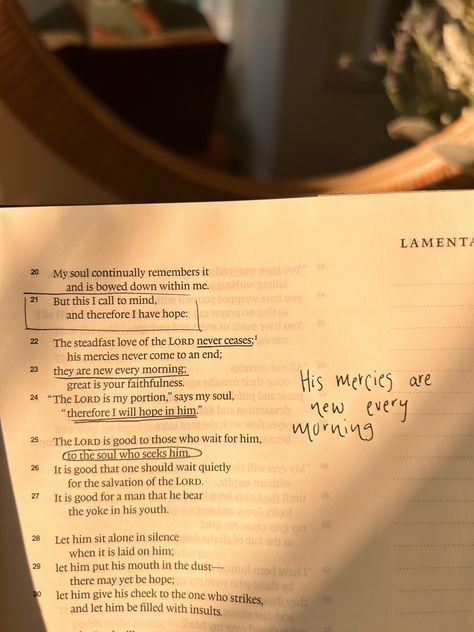 LAMENTA
20 My soul continually remembers it
and is bowed down within me.
21 But this I call to mind,
and therefore I have hope:
22 The steadfast love of the LORD never ceases;¹
his mercies never come to an end;
23 they are new every morning;
great is your faithfulness.
24 “The LORD is my portion,” says my soul,
“therefore I will hope in him.”
25 The LORD is good to those who wait for him,
to the soul who seeks him.
26 It is good that one should wait quietly
for the salvation of the LORD.
27 It is good for a man that he bear
the yoke in his youth.
28 Let him sit alone in silence
when it is laid on him;
29 let him put his mouth in the dust—
there may yet be hope;
30 let him give his cheek to the one who strikes,
and let him be filled with insults.
His mercies are
new every
morning